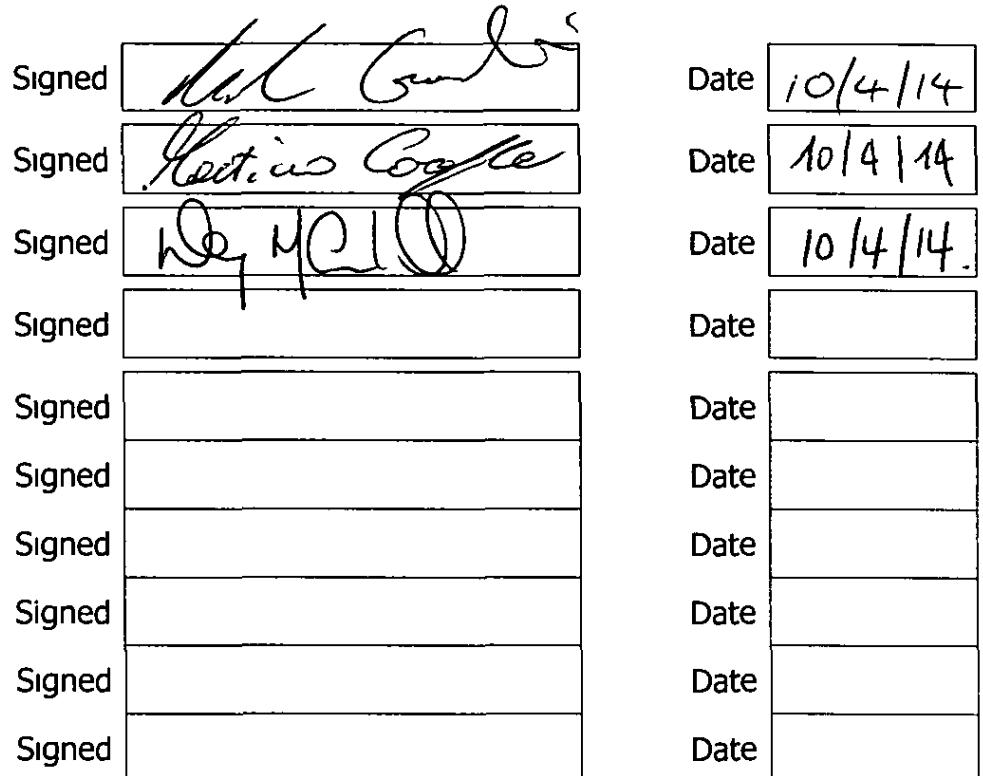 Signed Date 10/4/14
Signed Date 10/4/14
Signed Date 10/4/14.
Signed Date
Signed Date
Signed Date
Signed Date
Signed Date
Signed Date
Signed Date